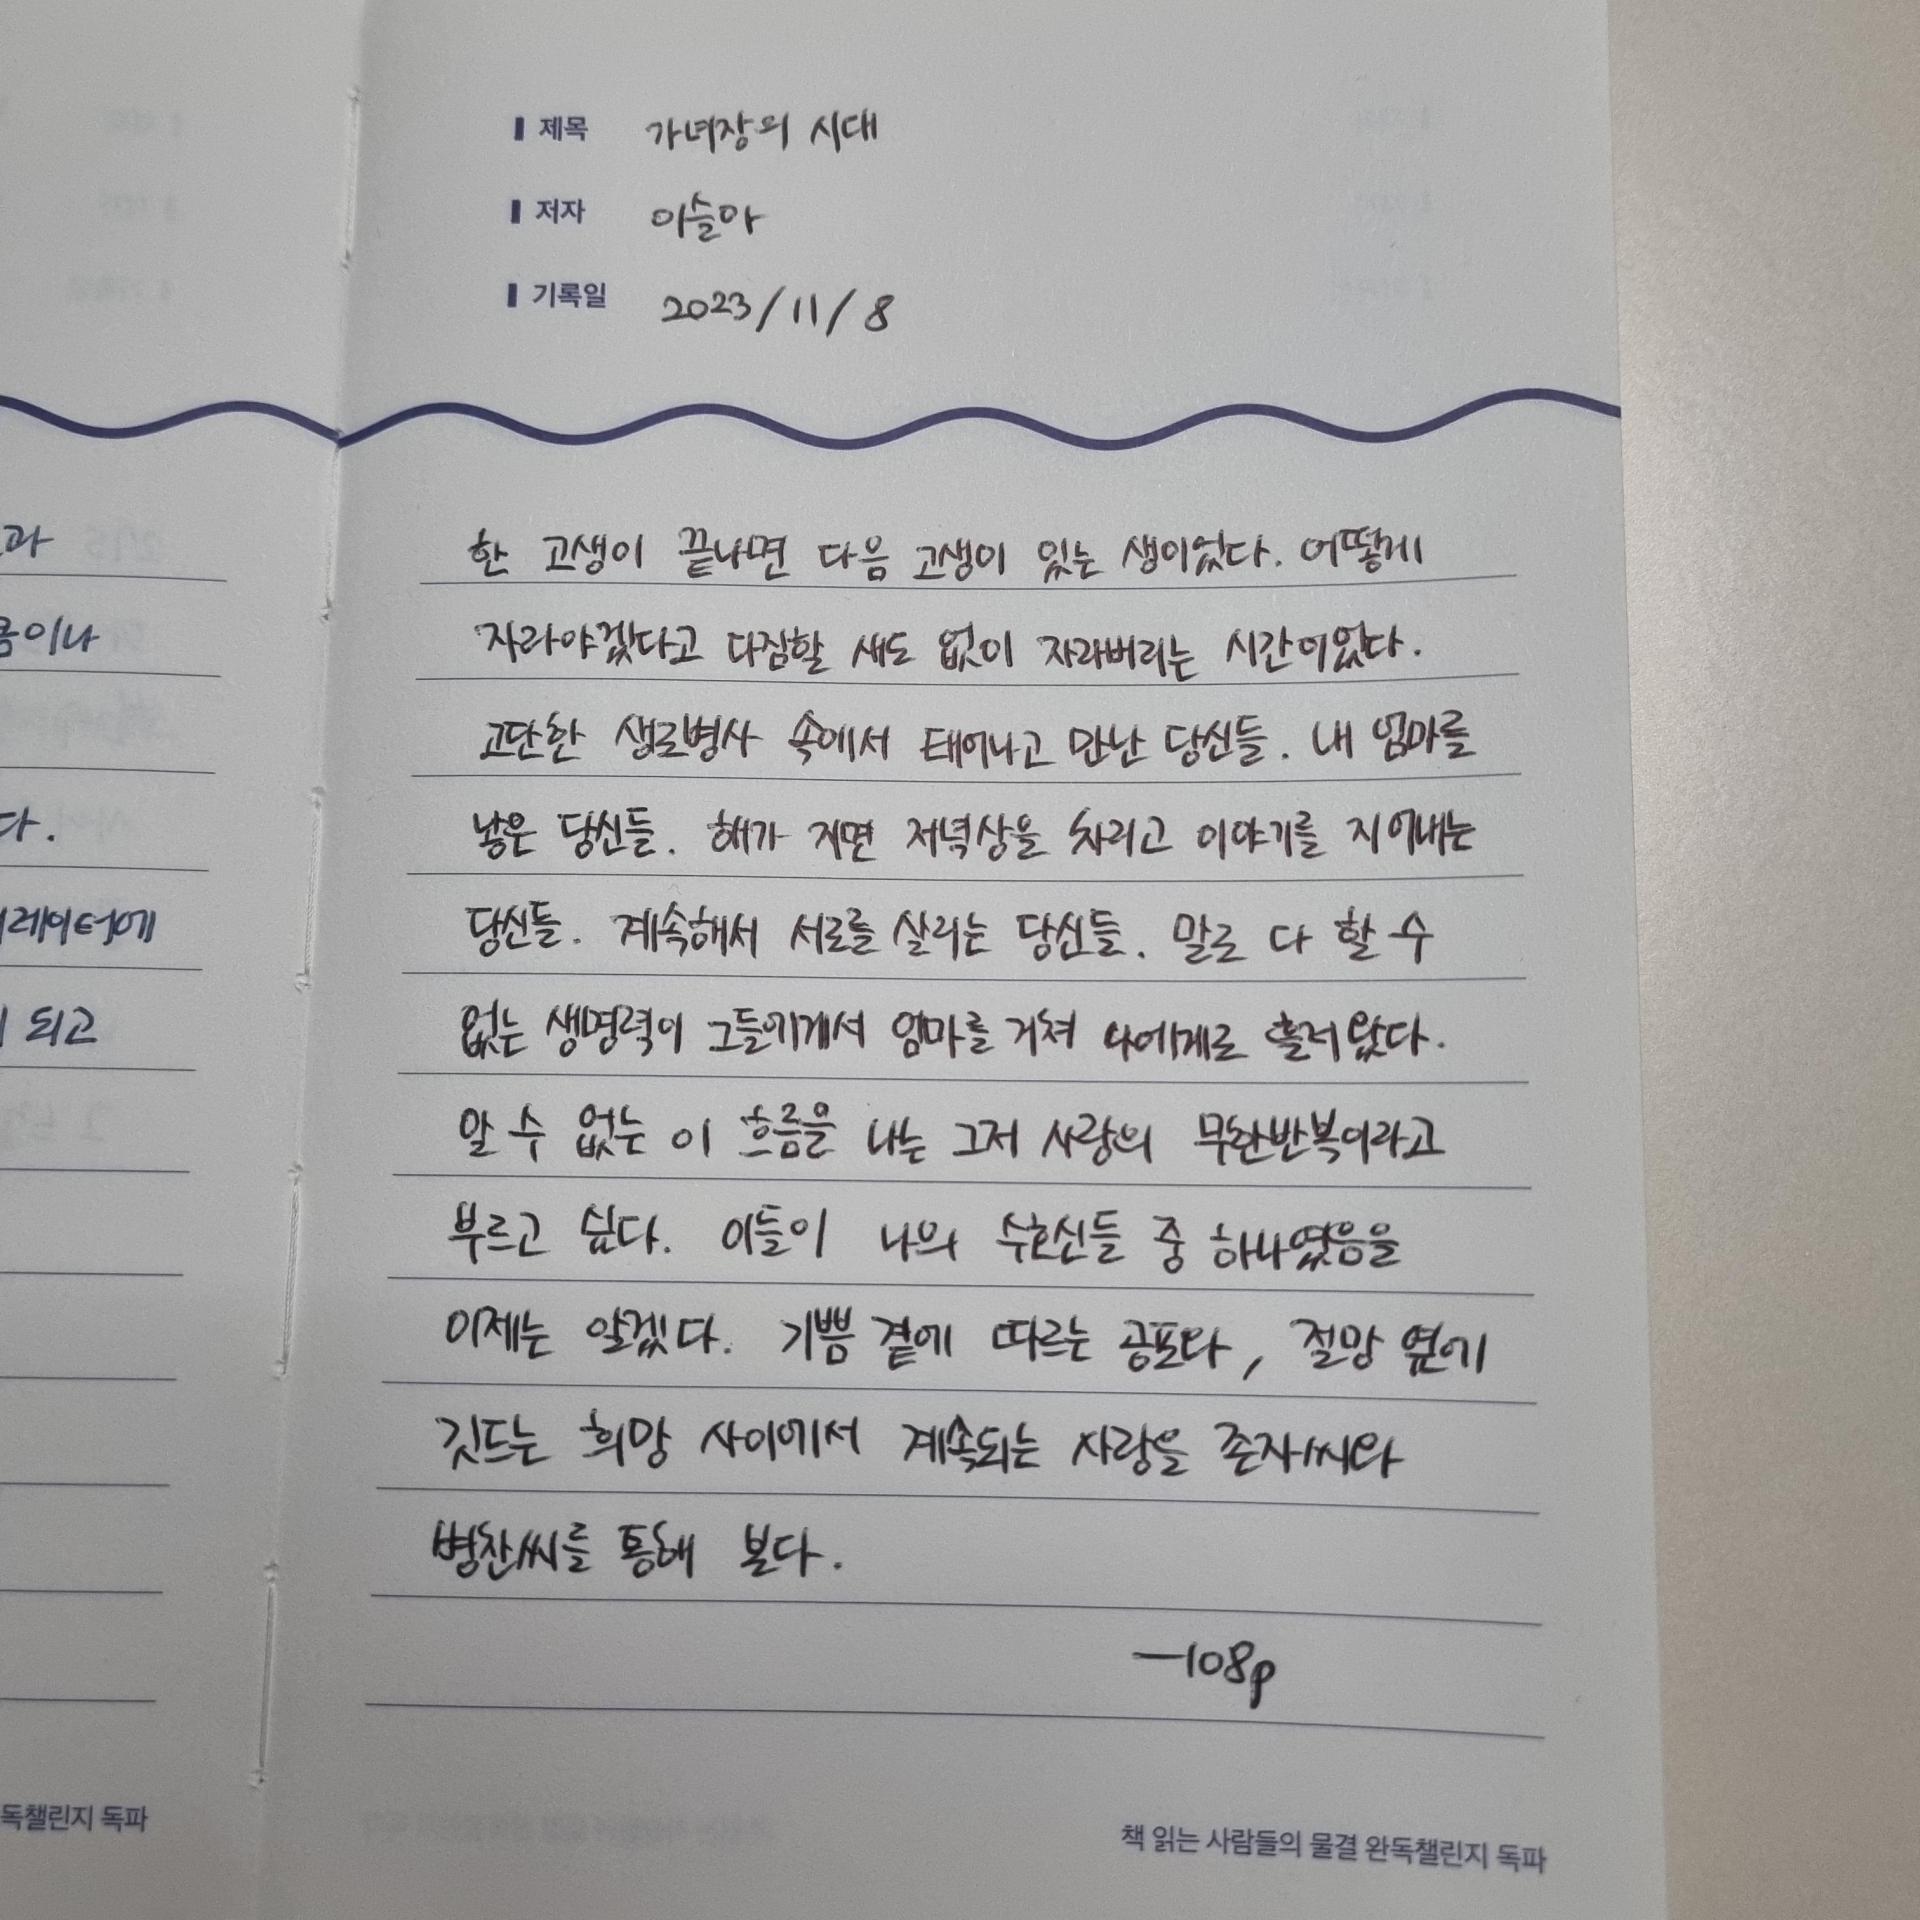 제목 가녀장의 시대
저자 이슬아
기록일 2023/11/8
한 고생이 끝나면 다음 고생이 있는 생이었다. 어떻게
자라야겠다고 다짐할 새도 없이 자라버리는 시간이었다.
고단한 생로병사 속에서 태어나고 만난 당신들. 내 엄마를
낳은 당신들. 해가 지면 저녁상을 차리고 이야기를 지어내는
당신들. 계속해서 서로를 살리는 당신들. 말로 다 할 수
없는 생명력이 그들에게서 엄마를 거쳐 나에게로 흘러왔다.
알 수 없는 이 흐름을 나는 그저 사랑의 무한반복이라고
부르고 싶다. 이들이 나의 수호신들 중 하나였음을
이제는 알겠다. 기쁨 곁에 따르는 공포와, 절망 옆에
깃드는 희망 사이에서 계속되는 사랑을 존자씨와
병찬씨를 통해 본다.
—108p
책 읽는 사람들의 물결 완독챌린지 독파
과
이나
다.
레이터에
되고
독챌린지 독파